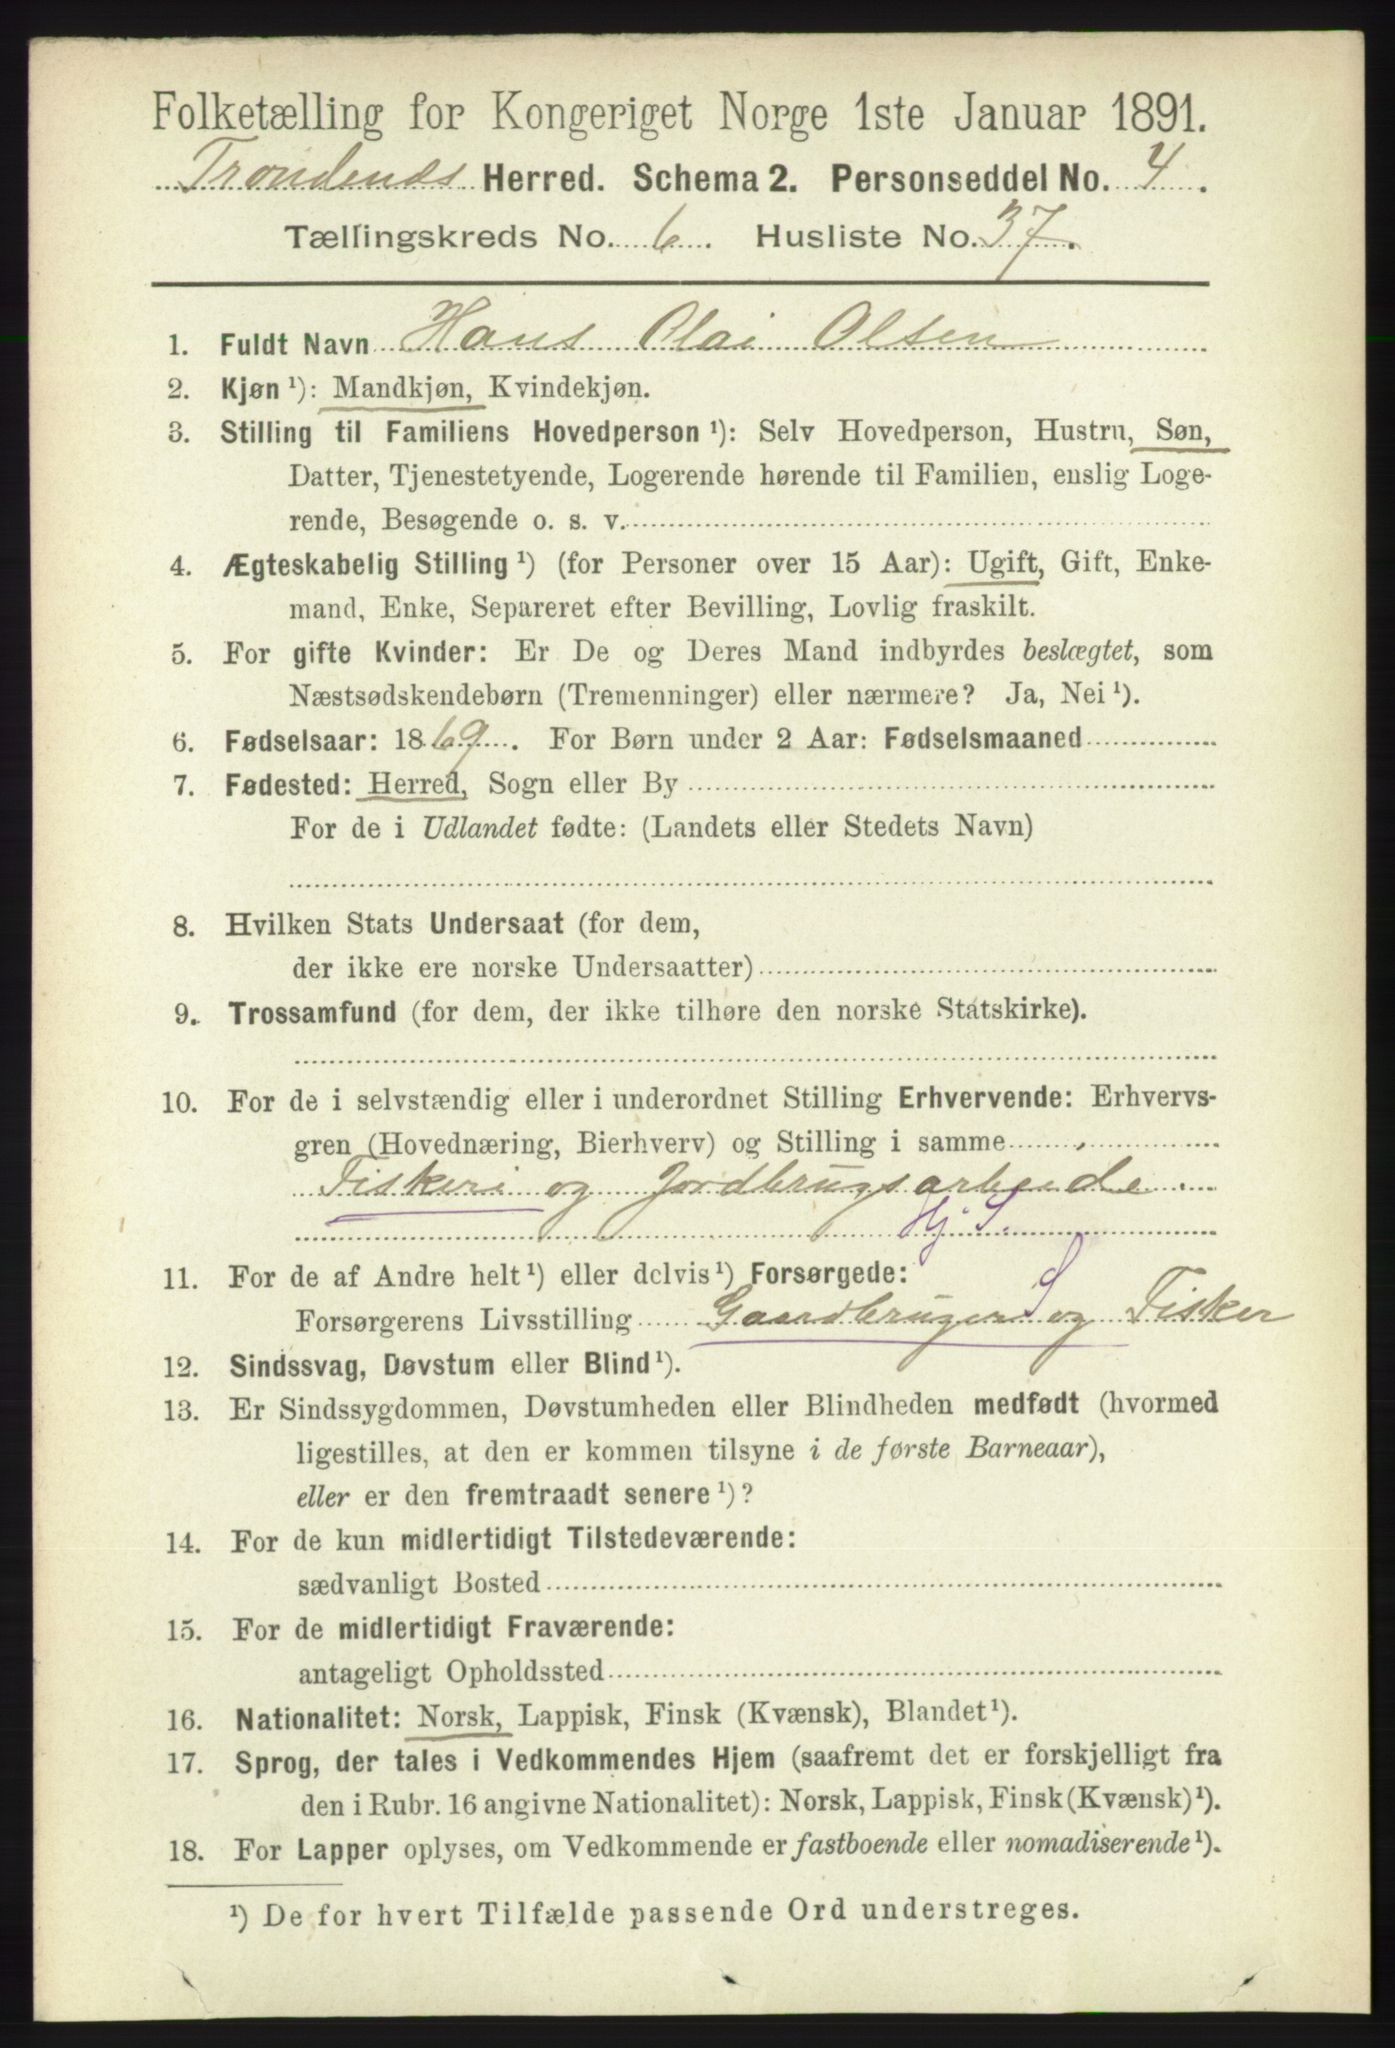 Folketælling for Kongeriget Norge 1ste Januar 1891.
Trondenæs Herred. Schema 2. Personseddel No. 4.
Tællingskreds No. 6. Husliste No. 37.
1. Fuldt Navn Hans Olai Olsen
2. Kjøn ¹): Mandkjøn, Kvindekjøn.
3. Stilling til Familiens Hovedperson ¹): Selv Hovedperson, Hustru, Søn,
Datter, Tjenestetyende, Logerende hørende til Familien, enslig Loge-
rende, Besøgende o. s. v.
4. Ægteskabelig Stilling ¹) (for Personer over 15 Aar): Ugift, Gift, Enke-
mand, Enke, Separeret efter Bevilling, Lovlig fraskilt.
5. For gifte Kvinder: Er De og Deres Mand indbyrdes beslægtet, som
Næstsødskendebørn (Tremenninger) eller nærmere? Ja, Nei ¹).
6. Fødselsaar: 1869. For Børn under 2 Aar: Fødselsmaaned
7. Fødested: Herred, Sogn eller By
For de i Udlandet fødte: (Landets eller Stedets Navn)
8. Hvilken Stats Undersaat (for dem,
der ikke ere norske Undersaatter)
9. Trossamfund (for dem, der ikke tilhøre den norske Statskirke).
10. For de i selvstændig eller i underordnet Stilling Erhvervende: Erhvervs-
gren (Hovednæring, Bierhverv) og Stilling i samme
Fiskeri og Jordbrugsarbeide.
Hj S.
11. For de af Andre helt ¹) eller delvis ¹) Forsørgede:
Forsørgerens Livsstilling Gaardbruger S og Fisker
12. Sindssvag, Døvstum eller Blind ¹).
13. Er Sindssygdommen, Døvstumheden eller Blindheden medfødt (hvormed
ligestilles, at den er kommen tilsyne i de første Barneaar),
eller er den fremtraadt senere ¹)?
14. For de kun midlertidigt Tilstedeværende:
sædvanligt Bosted
15. For de midlertidigt Fraværende:
antageligt Opholdssted
16. Nationalitet: Norsk, Lappisk, Finsk (Kvænsk), Blandet ¹).
17. Sprog, der tales i Vedkommendes Hjem (saafremt det er forskjelligt fra
den i Rubr. 16 angivne Nationalitet): Norsk, Lappisk, Finsk (Kvænsk) ¹).
18. For Lapper oplyses, om Vedkommende er fastboende eller nomadiserende ¹).
¹) De for hvert Tilfælde passende Ord understreges.